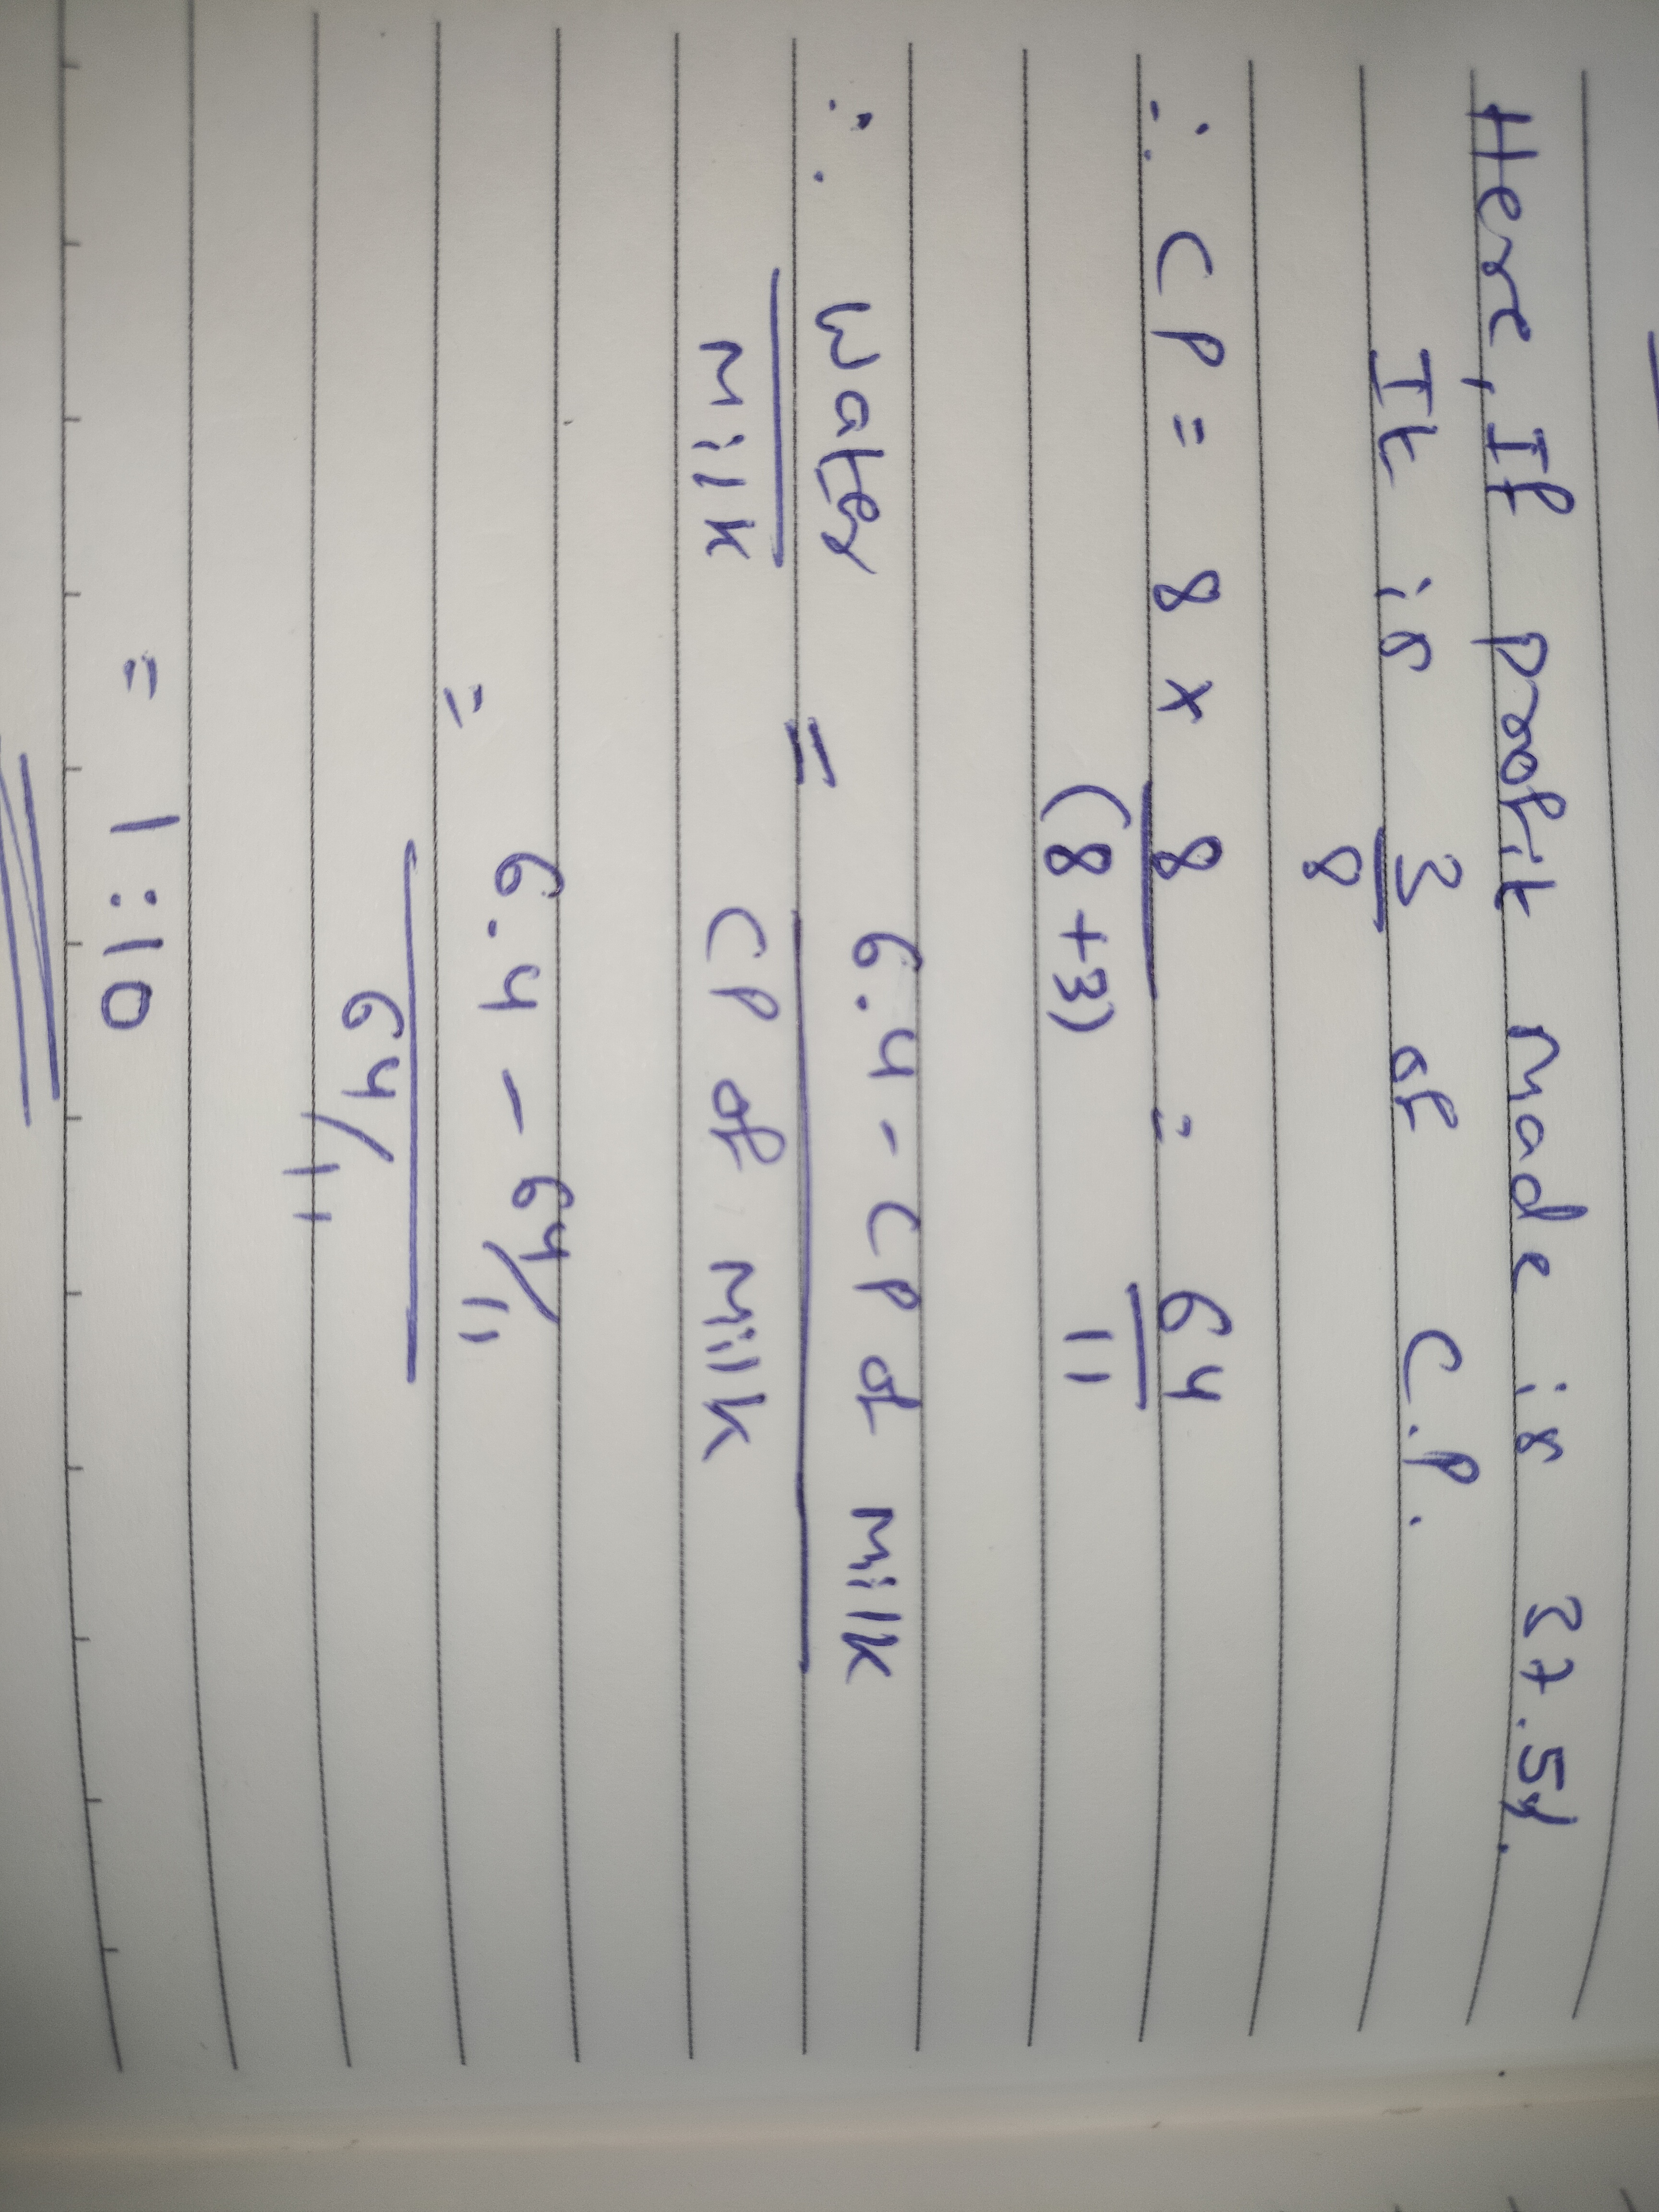 Here, If profit made is 37.5%.
It is 3/8 of C.P.
∴ CP = 8 x 8/(8+3) = 64/11
∴ Water/Milk = 6.4 - CP of milk/CP of milk
= 6.4 - 64/11/64/11
= 1:10